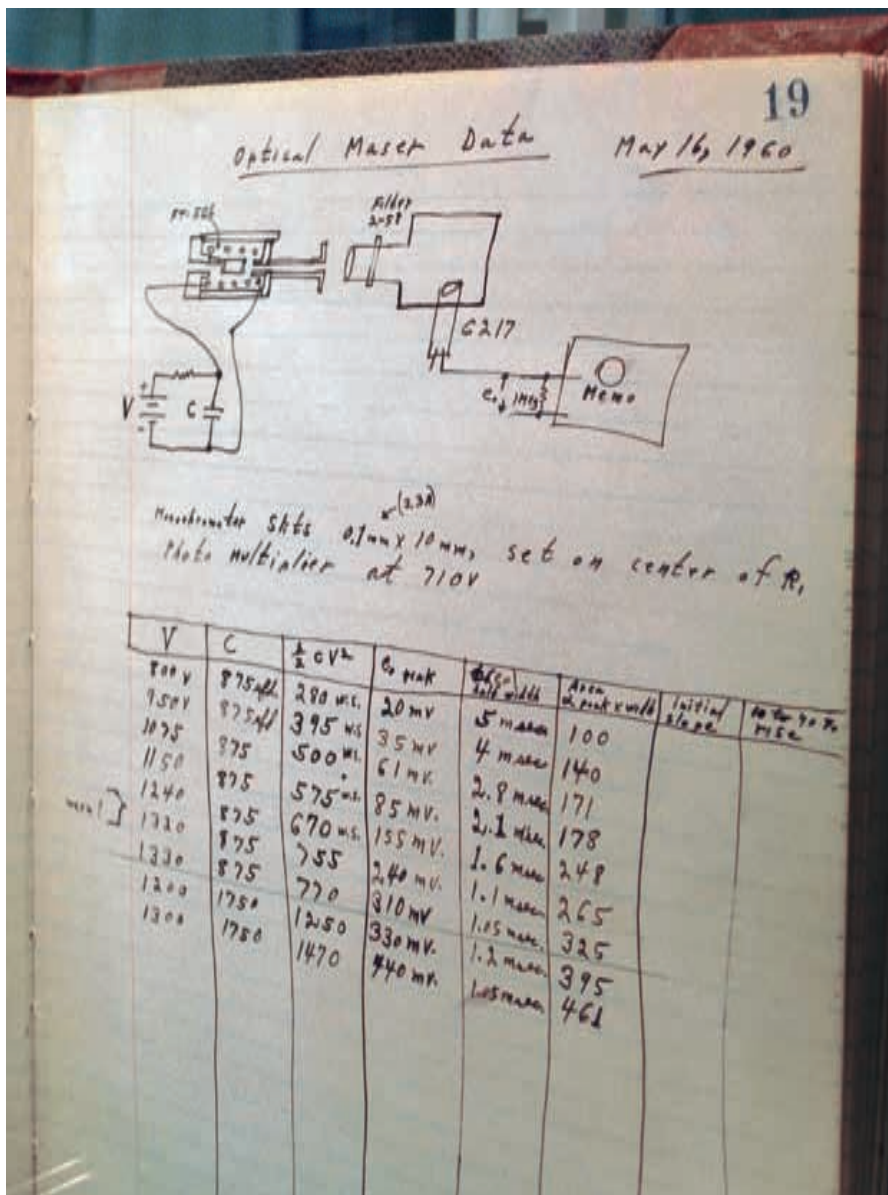 19
Optical Maser Data May 16, 1960
FT-506
Filter
2-58
6217
V
+
-
C
e₀
1Meg
Memo
(2,3Å)
Monochrometer Slits 0.1mm x 10mm, set on center of R₁
Photo multiplier at 710V
V C ½ CV² e₀ peak half width Area e₀ peak x width initial slope 10 to 90 % rise
800v 875μfd 280 w.s. 20mv 5 msec 100
950v 875μfd 395 ws 35mv 4 msec 140
1075 875 500 ws. 61mv. 2.8 msec 171
1150 875 575 w.s. 85mv. 2.1 msec 178
1240 875 670 w.s. 155mv. 1.6 msec 248
1320 875 755 240mv. 1.1 msec 265
1330 875 770 310mv 1.05msec. 325
1200 1750 1250 330mv. 1.2 msec. 395
1300 1750 1470 440mv. 1.05msec 461